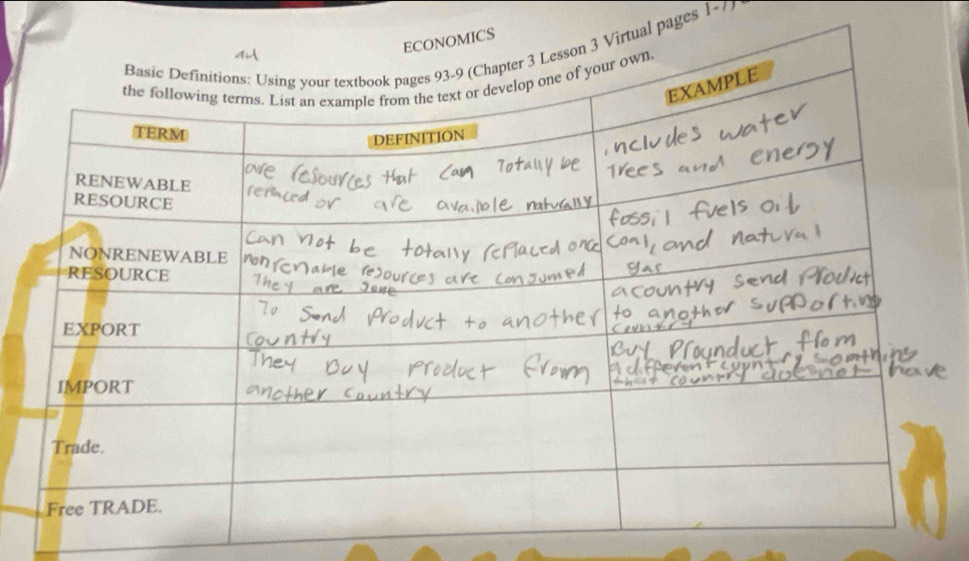 ECONOMICS
Basic Definitions: Using your textbook pages 93-9 (Chapter 3 Lesson 3 Virtual pages 1-
the following terms. List an example from the text or develop one of your own.
TERM DEFINITION EXAMPLE
RENEWABLE RESOURCE
are resources that can Totally be
or are available naturally
includes water
Trees and energy
NONRENEWABLE RESOURCE
can not be totally replaced once
resources are consumed
They are gone
fossil fuels oil
coal, and natural
gas
EXPORT
To Send product to another
country
a country send product
to another supporting
country
IMPORT
They Buy product from
another country
Buy Prounduct from
a different country somthing
that country does not have
Trade.
Free TRADE.